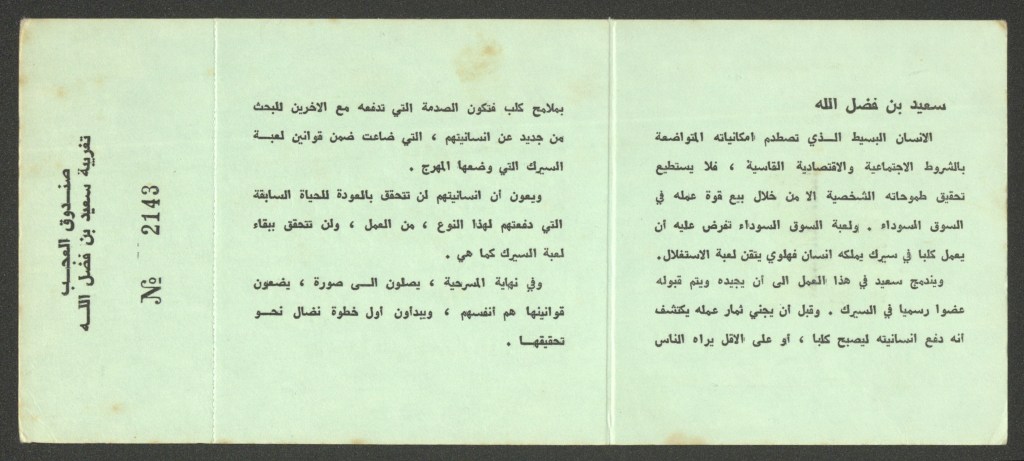 سعيد بن فضل الله
الانسان البسيط الـذي تصطدم امكانياته المتواضعة
بالشروط الاجتماعية والاقتصادية القاسية ، فلا يستطيع
تحقيق طموحاته الشخصية الا من خلال بيع قوة عمله في
السوق السوداء . ولعبة السوق السوداء تفرض عليه أن
يعمل كلبا في سيرك يملكه انسان فهلوي يتقن لعبة الاستغلال.
ويندمج سعيد في هذا العمل الى أن يجيده ويتم قبوله
عضوا رسميا في السيرك . وقبل أن يجني ثمار عمله يكتشف
انه دفع انسانيته ليصبح كلبا ، أو على الاقل يراه الناس
بملامح كلب فتكون الصدمة التي تدفعه مع الاخرين للبحث
من جديد عن انسانيتهم ، التي ضاعت ضمن قوانين لعبـة
السيرك التي وضعها المهرج .
ويعون أن انسانيتهم لن تتحقق بالعودة للحياة السابقة
التي دفعتهم لهذا النوع ، من العمل ، ولن تتحقق ببقاء
لعبة السيرك كما هي .
وفي نهاية المسرحية ، يصلون الـى صورة ، يضعون
قوانينها هم انفسهم ، ويبدأون أول خطوة نضال نحـو
تحقيقهـا .
صنـدوق العجـب
تغريبة سعيد بن فضل اللـه
№ 2143